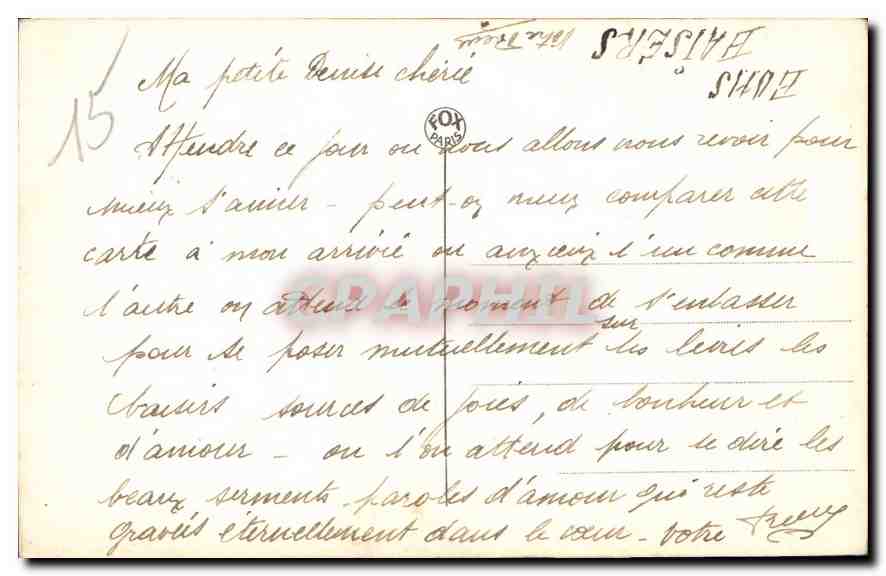 15
Ma petite Denise chérie
FOX
PARIS
Attendre ce jour ou nous allons nous revoir pour
mieux s'aimer - peut-on mieux comparer cette
carte à mon arrivée ou anxieux l'un comme
l'autre on attend le moment de s'enlasser
pour se poser mutuellement sur les levres les
baisers sources de joies, de bonheur et
d'amour - ou l'on attend pour se dire les
beaux serments paroles d'amour qui reste
gravés éternellement dans le cœur - votre
votre
BAISERS
CPAPHIL